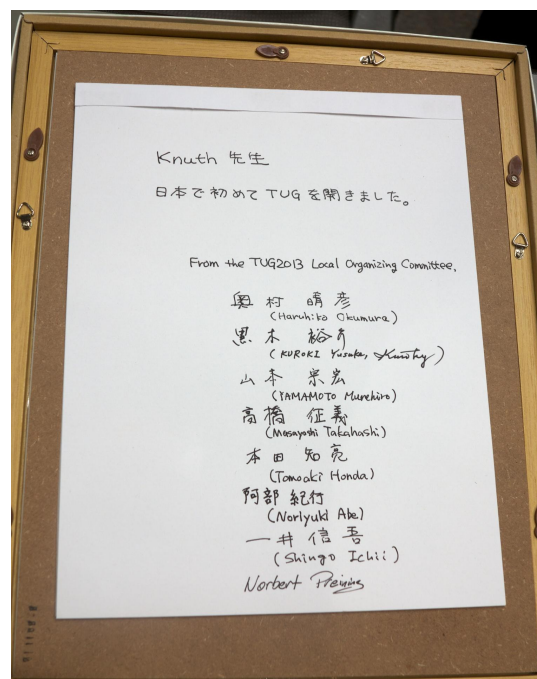 Knuth 先生
日本で初めて TUG を開きました。
From the TUG2013 Local Organizing Committee,
奥村 晴彦
(Haruhiko Okumura)
黒木 裕介
(KUROKI Yusuke, Kuroky)
山本 宗宏
(YAMAMOTO Munehiro)
高橋 征義
(Masayoshi Takahashi)
本田 知亮
(Tomoaki Honda)
阿部 紀行
(Noriyuki Abe)
一井 信吾
(Shingo Ichii)
Norbert Preining